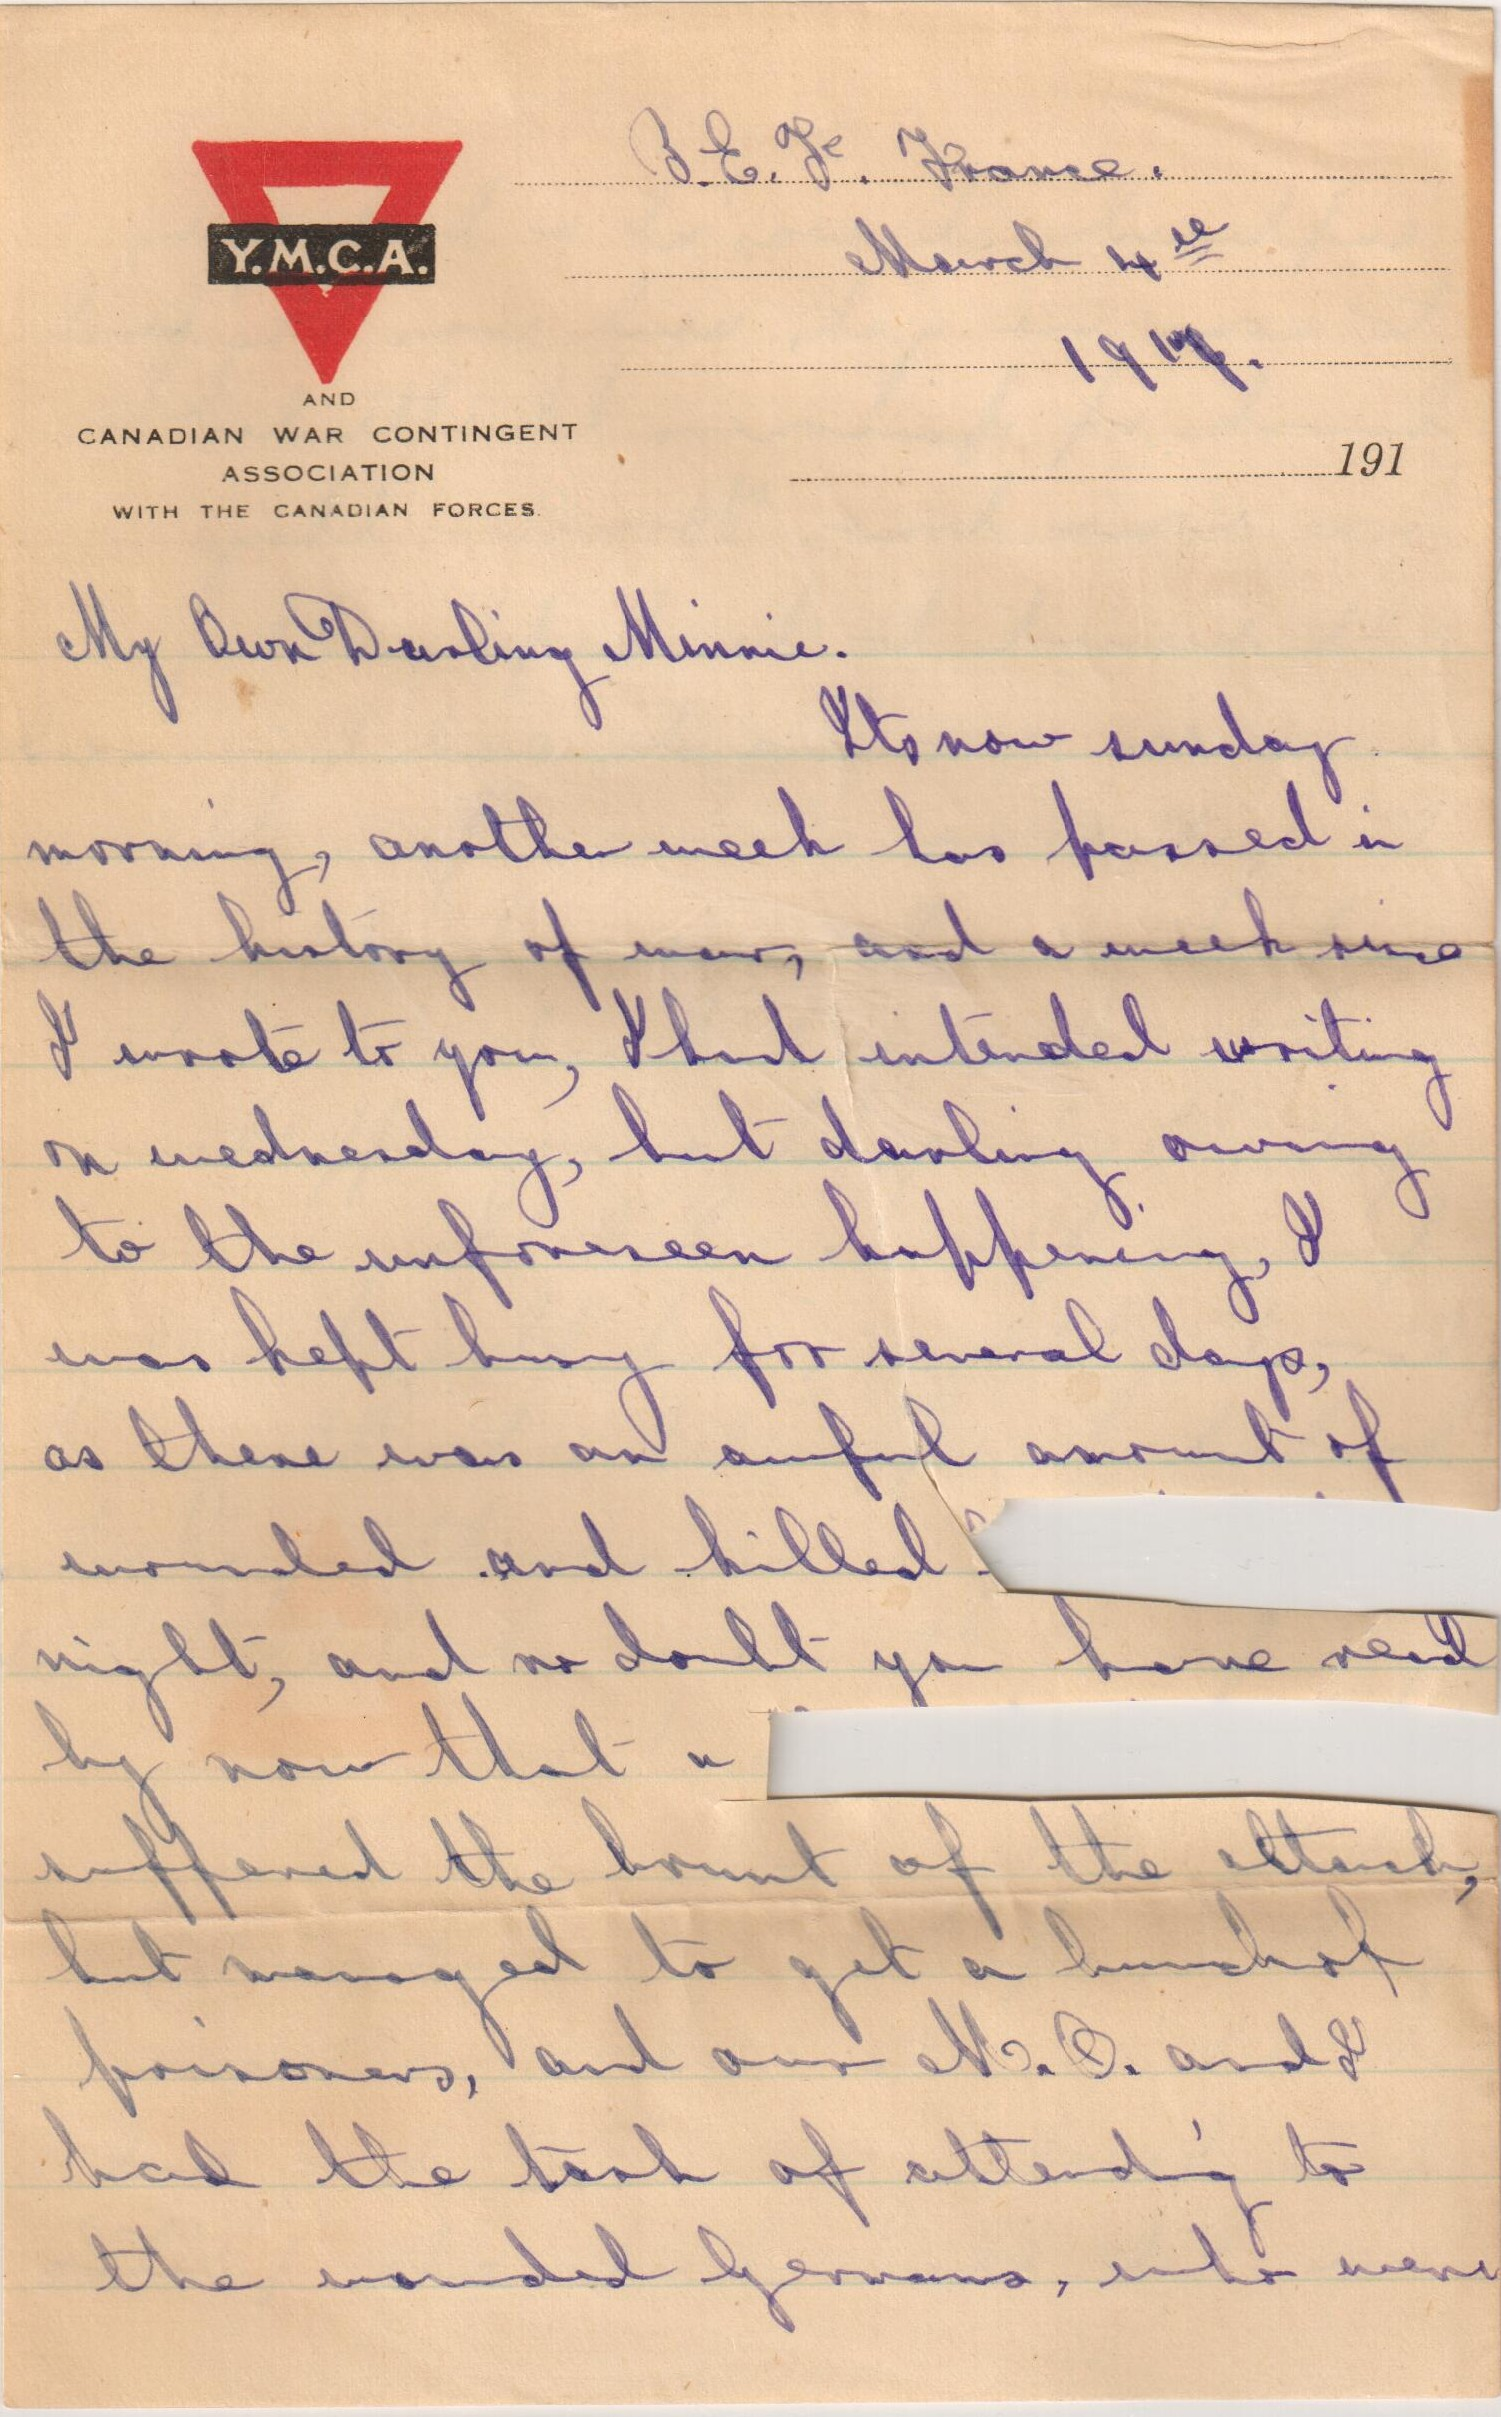 Y.M.C.A.
AND
CANADIAN WAR CONTINGENT
ASSOCIATION
WITH THE CANADIAN FORCES.
B.E.F. France.
March 4th
1917.
191
My Own Darling Minnie.
Its now sunday
morning, another week has passed in
the history of war, and a week since
I wrote to you, I had intended writing
on wednesday, but darling owing
to the unforeseen happening, I
was kept busy for several days,
as there was an awful amount of
wounded and killed
night, and no doubt you have read
by now that a
suffered the brunt of the attack,
but managed to get a bunch of
prisoners, and our M.O. and I
had the task of attend'g to
the wounded Germans, who were